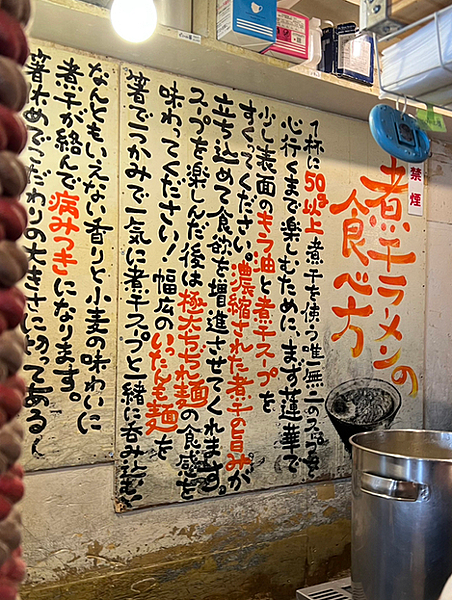 煮干ラーメンの
食べ方
禁煙
1杯に50g以上煮干を使う唯一無二のスープを
心行くまで楽しむために、まず蓮華で
少し表面のキラ油と煮干スープを
すくってください。濃縮された煮干の旨みが
立ち込めて食欲を増進させてくれます。
スープを楽しんだ後は極太ちぢれ麺の食感を
味わってください!幅広のいったんも麺を
箸でつかみで一気に煮干スープと一緒に呑み込む
なんともいえない香りと小麦の味わいに
煮干が絡んで病みつきになります。
箸休めでこだわりの大きさに切ってある